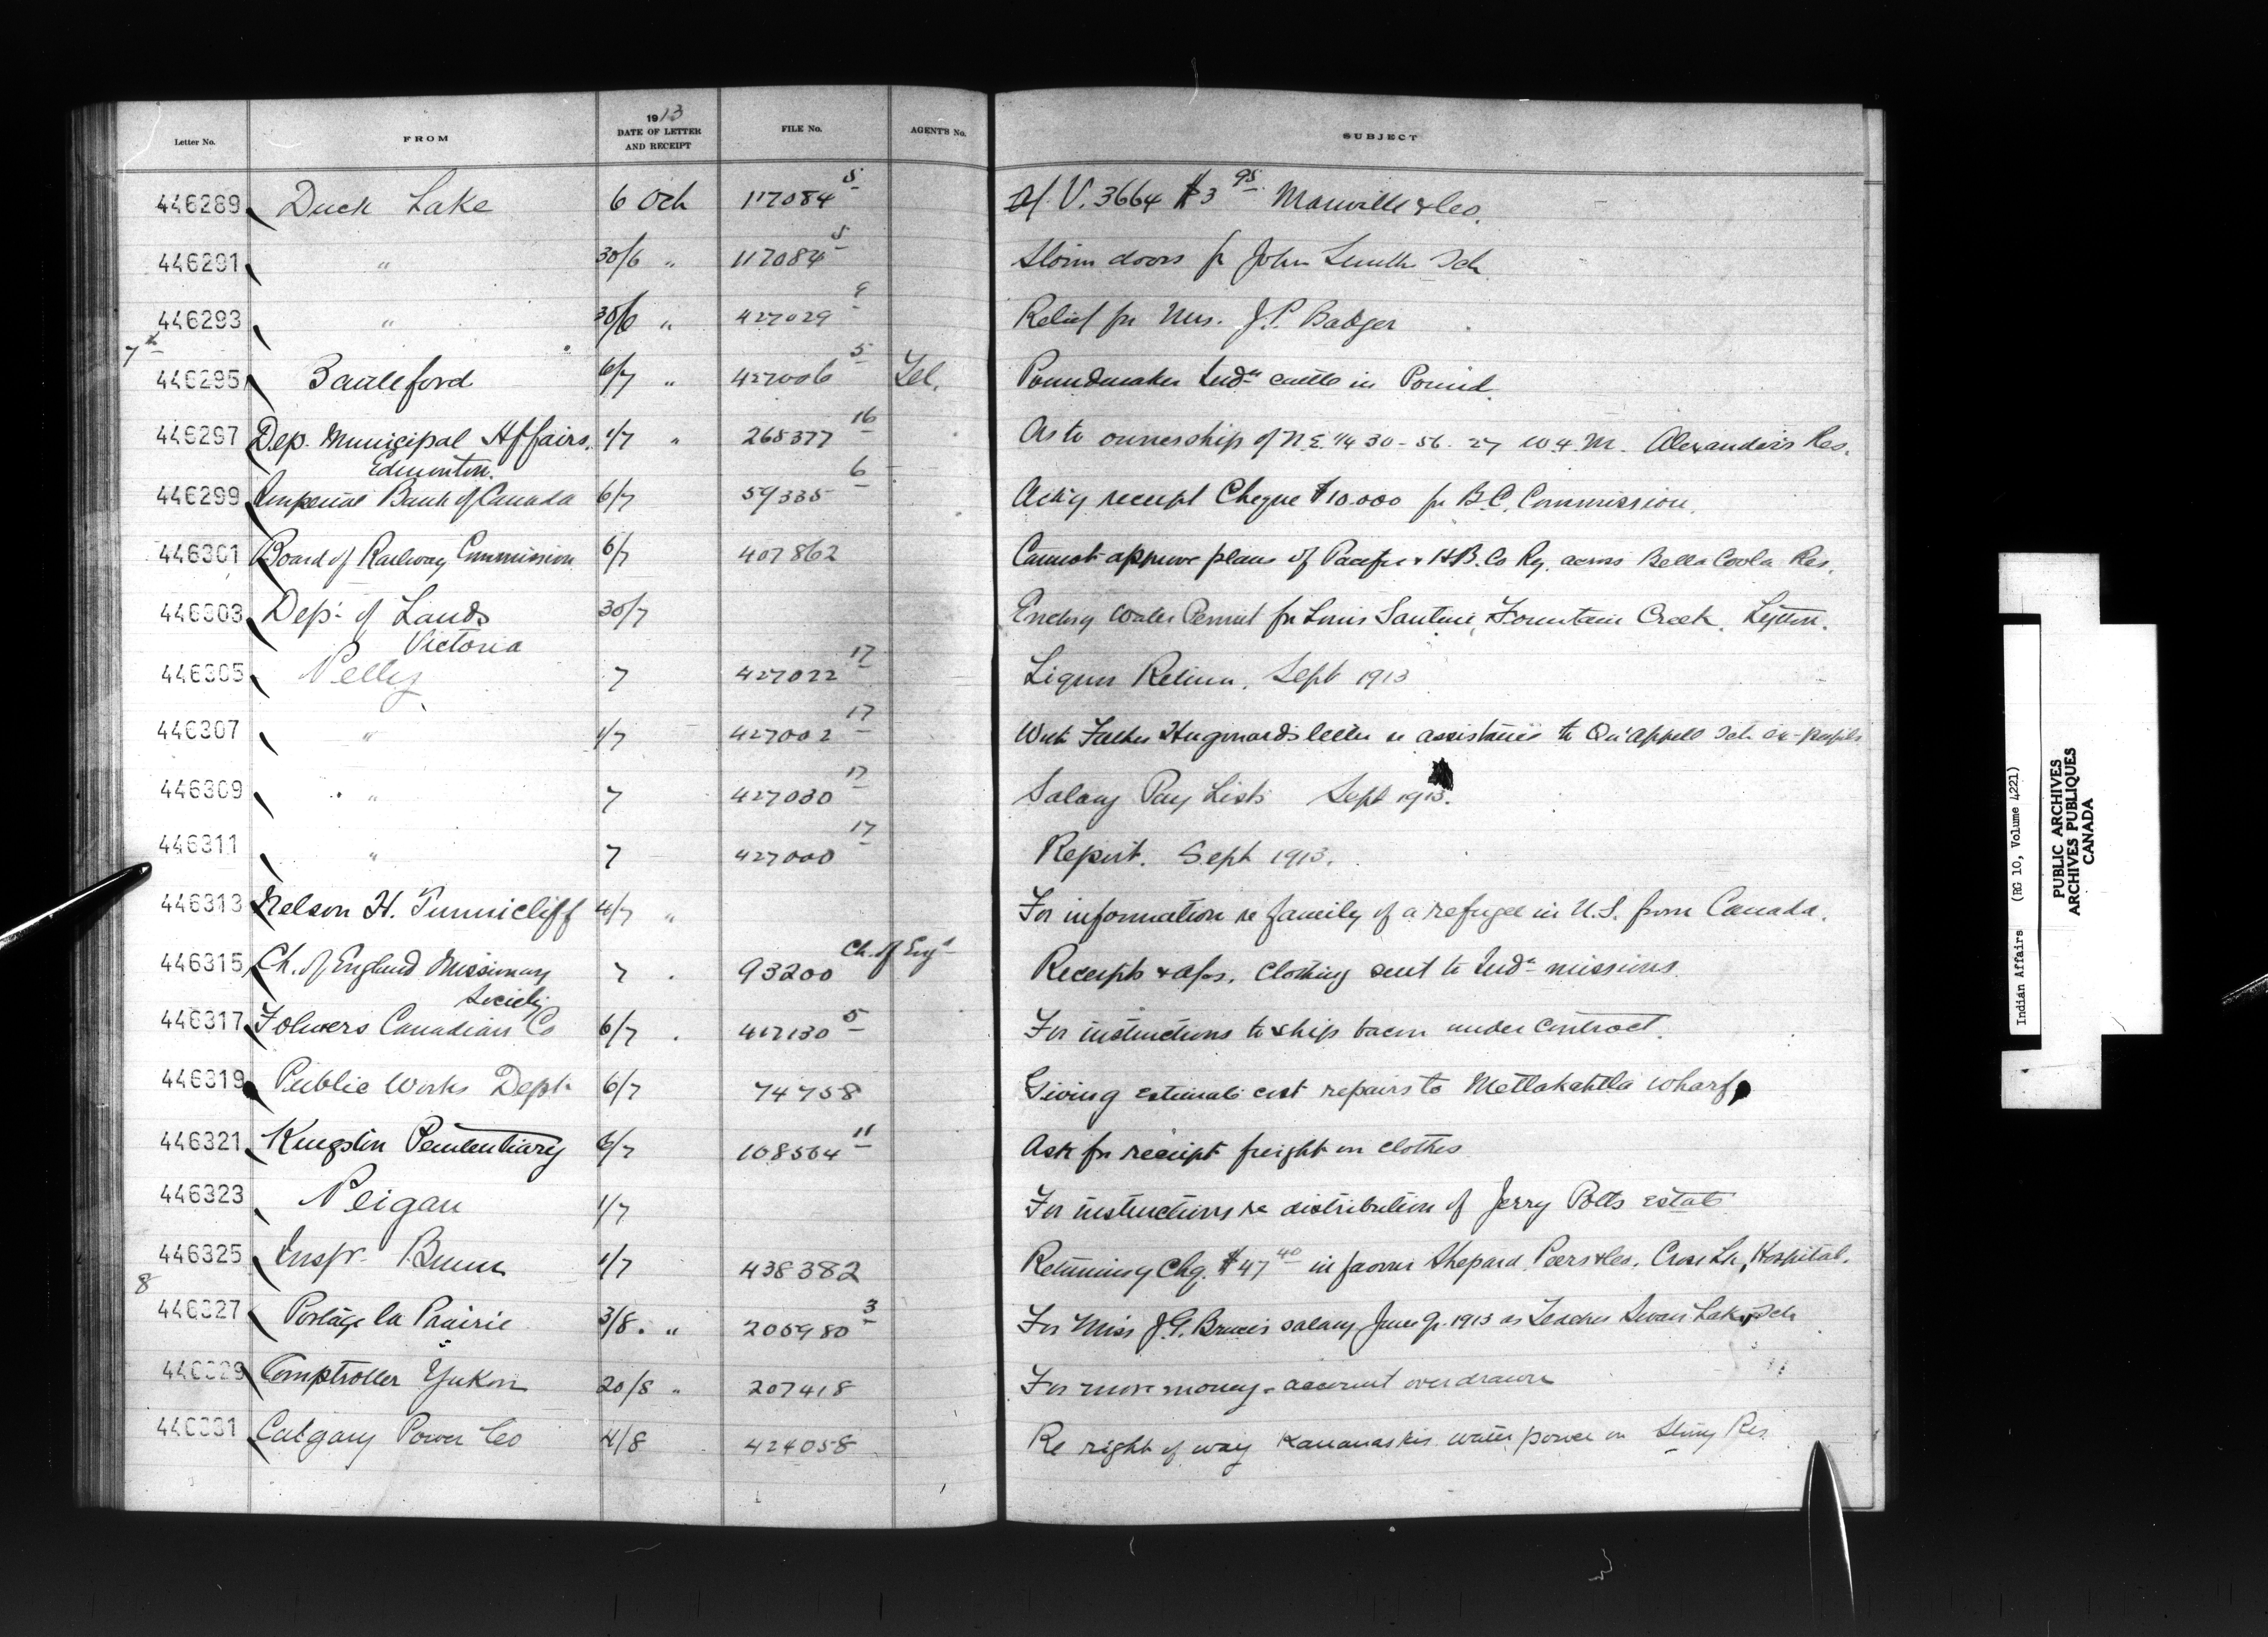 1913
Letter No. FROM DATE OF LETTER AND RECEIPT FILE No. AGENT'S No. SUBJECT
446289 Duck Lake 6 Oct 117084 5 V. 3664 $3 95 Manville & Co.
446291 " 30/6 " 117084 5 Storm doors fr John Smith Sch
446293 " 30/6 " 427029 9 Relief for Mrs. J.P. Badger
7th
446295 Battleford 6/7 " 427006 5 Tel. Poundmaker Indn cattle in Pound.
446297 Dep. Municipal Affairs. 1/7 " 265377 16 As to ownership of N.E. 1/4 30-56. 27 W.4.M. Alexander's Res.
Edmonton.
446299 Imperial Bank of Canada 6/7 59335 6 Ackg receipt Cheque $10.000 fr B.C. Commission.
446301 Board of Railway Commission 6/7 407862 Cannot approve plans of Pacific & H.B. Co Ry. across Bella Coola Res.
446303 Dept of Lands 30/7 Enclsg Water Permit for Louis Fountain Creek. Lytton.
Victoria
446305 Pelly 7 427022 17 Liquor Return. Sept 1913
446307 " 1/7 427002 17 With Father Hugonard's letter re assistance to Qu'Appelle Sch ex-pupils
446309 " 7 427030 17 Salary Pay Lists Sept 1913.
446311 " 7 427000 17 Report. Sept 1913.
446313 Nelson H. Tunnicliff 4/7 " For information re family of a refugee in U.S. from Canada.
446315 Ch. of England Missionary 7 93200 Ch. of Engd Receipts & a/cs. Clothing sent to Indn missions.
Society
446317 Fowlers Canadian Co 6/7 412130 5 For instructions to ship bacon under contract.
446319 Public Works Dept 6/7 74758 Giving estimate cost repairs to Metlakahtla wharf
446321 Kingston Penitentiary 6/7 108564 11 Ask for receipt freight on clothes
446323 Peigan 1/7 For instructions re distribution of Jerry Potts estate
446325 Inspr. Bunn 1/7 438382 Returning Chq. $47 40 in favour Shepard, Peers & Co. Cross Lk. Hospital.
8
446327 Portage la Prairie 3/8. " 205980 3 For Miss J.G. Bruce's salary June qr. 1913 as Teacher Swan Lake Sch
446329 Comptroller Yukon 20/8 " 207418 For more money - account overdrawn
446331 Calgary Power Co 4/8 424058 Re right of way Kananaskis water power on Stony Res
Indian Affairs (RG 10, Volume 4221)
PUBLIC ARCHIVES
ARCHIVES PUBLIQUES
CANADA